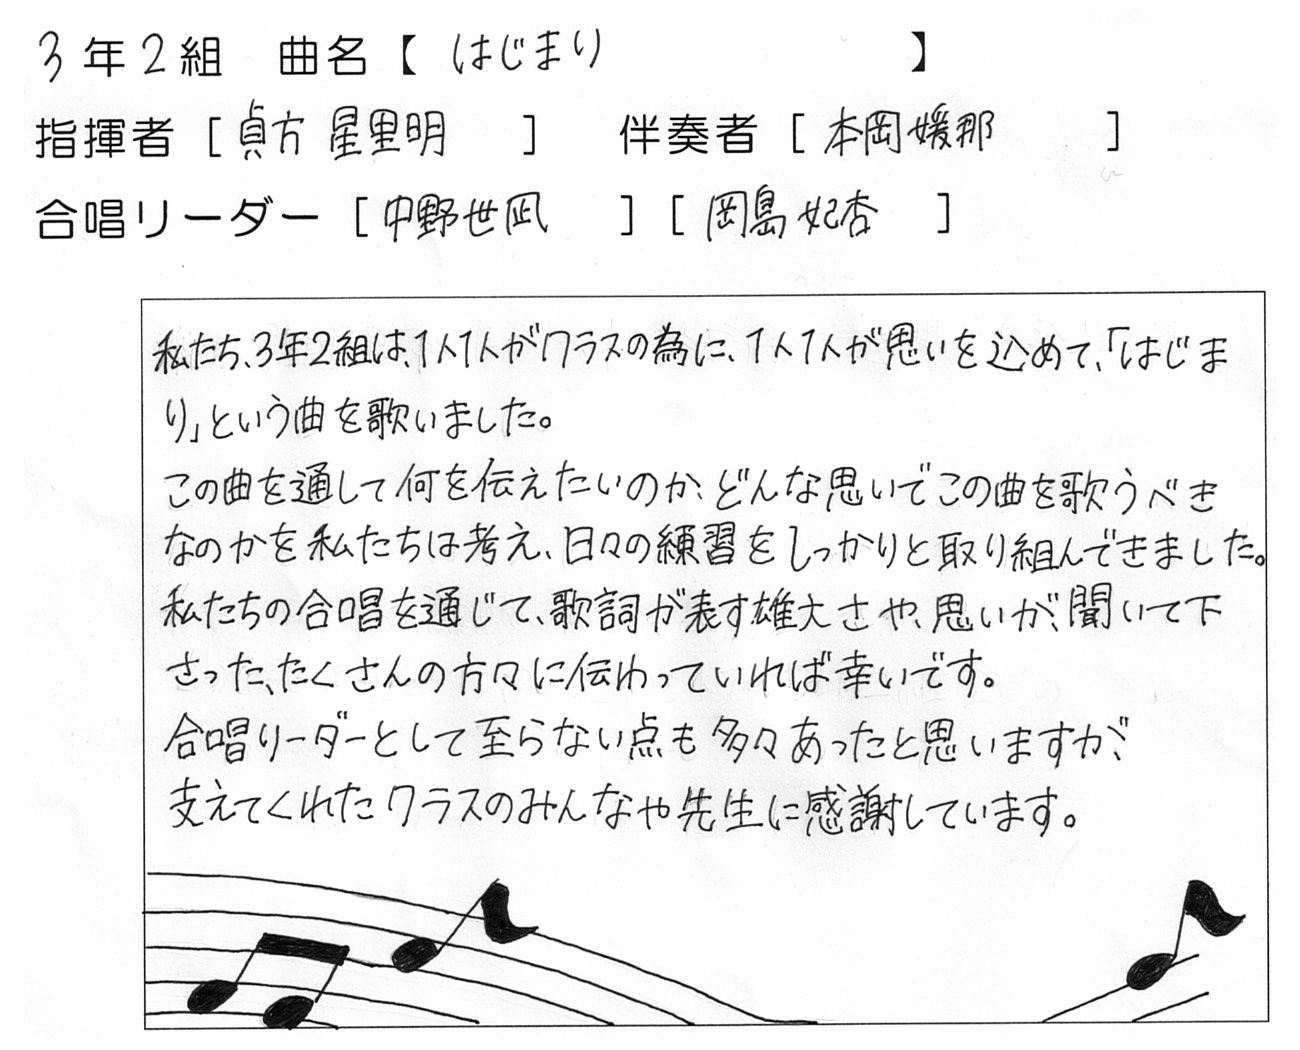 3年2組 曲名【 はじまり 】
指揮者 [ 貞方 星里明 ] 伴奏者 [ 本岡媛那 ]
合唱リーダー [ 中野世凪 ] [ 岡島妃杏 ]
私たち、3年2組は、1人1人がクラスの為に、1人1人が思いを込めて、「はじま
り」という曲を歌いました。
この曲を通して何を伝えたいのか、どんな思いでこの曲を歌うべき
なのかを私たちは考え、日々の練習をしっかりと取り組んできました。
私たちの合唱を通じて、歌詞が表す雄大さや、思いが、聞いて下
さった、たくさんの方々に伝わっていれば幸いです。
合唱リーダーとして至らない点も多々あったと思いますが、
支えてくれたクラスのみんなや先生に感謝しています。